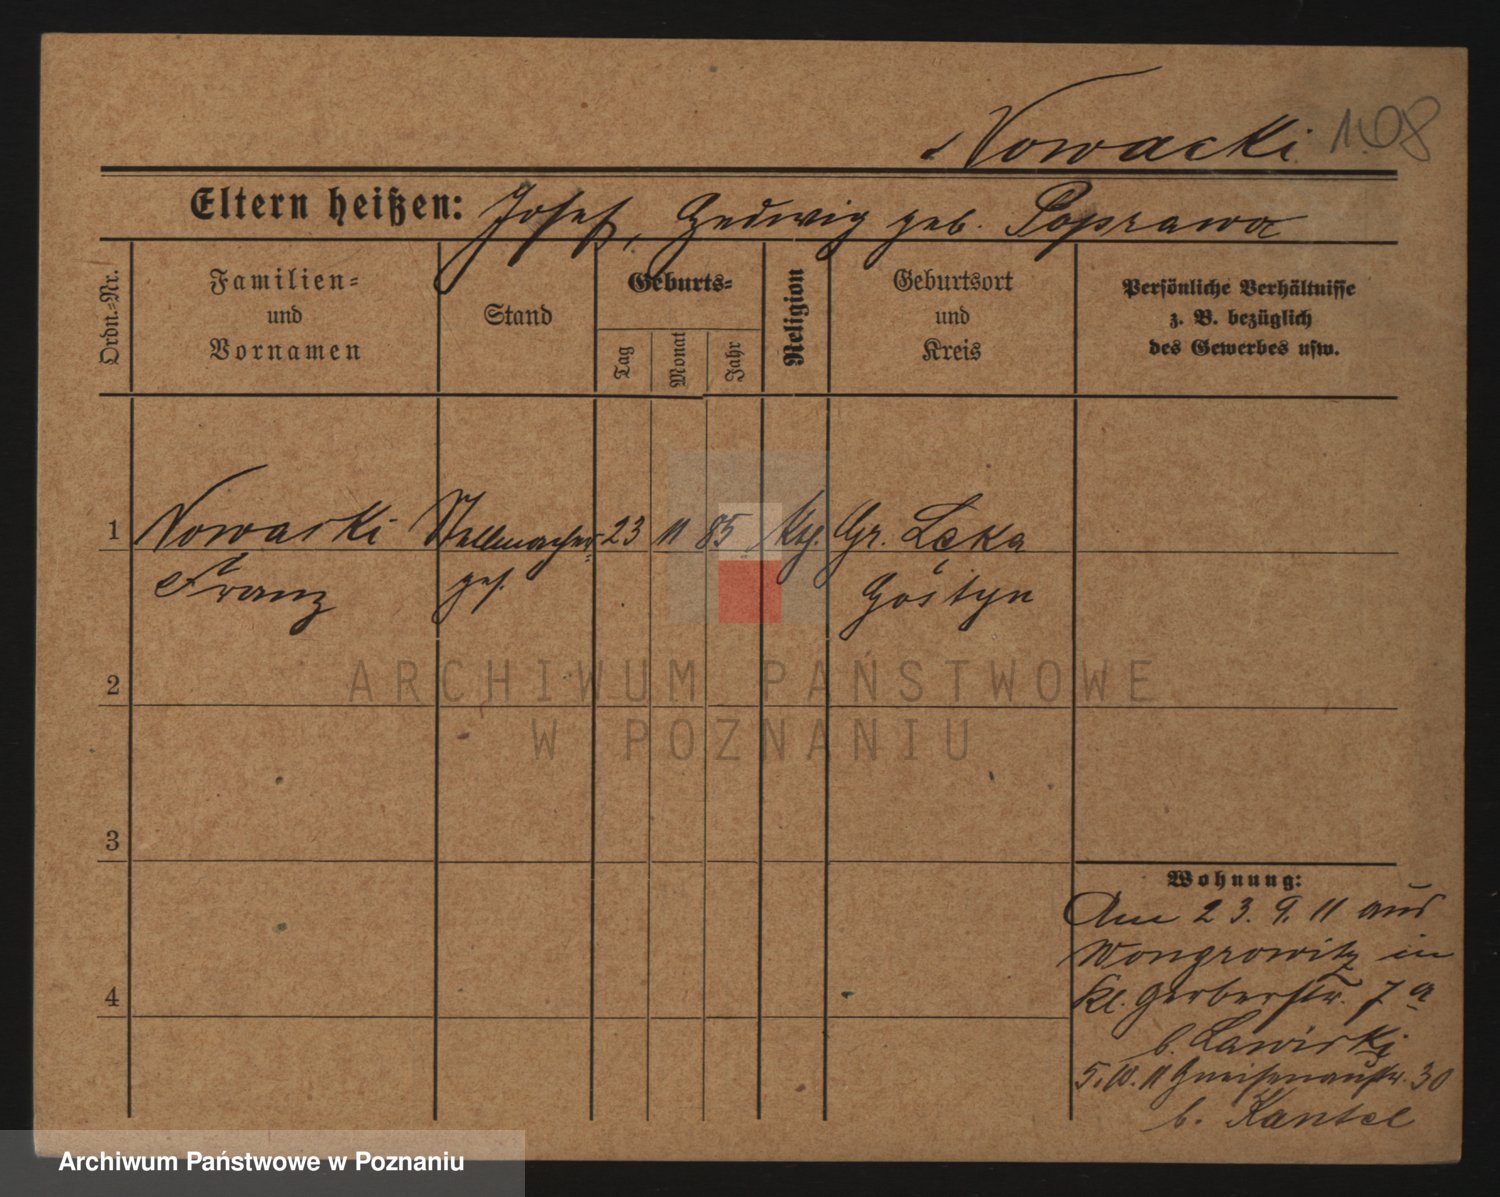 Nowacki 108
Eltern heißen: Josef, Hedwig geb. Poprawa
Ordn.-Nr.
Familien-
und
Vornamen
Stand
Geburts-
Tag
Monat
Jahr
Religion
Geburtsort
und
Kreis
Persönliche Verhältnisse
z. B. bezüglich
des Gewerbes usw.
1 Nowacki Stellmacher 23 11 85 Kth. Gr. Łęka
Franz ges. Gostyn
2
3
4
Wohnung:
Am 23. 9. 11 aus
Wongrowitz in
Kl. Gerberstr. 7a
b. Lawicki
5. 10. 11 Gneisenaustr. 30
b. Kantel
ARCHIWUM PAŃSTWOWE
W POZNANIU
Archiwum Państwowe w Poznaniu